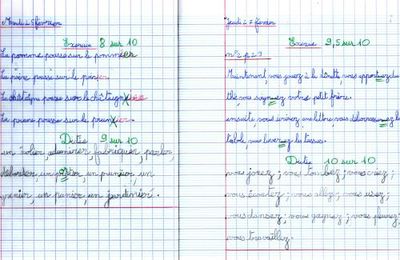 Mardi 25 février
Exercice 8 sur 10
La pomme pousse sur le pommier
La poire pousse sur le
La châtaigne pousse sur le châtaign
La prune pousse sur le prun
Dictée 9 sur 10
un évier, fabriquer, parler,
un prunier, un
panier, un jardinier.
Jeudi 27 février
Exercice 9,5 sur 10
n°2 p
Maintenant, vous jouez à la dînette, vous apportez du
thé, vous soignez votre petit frère.
ensuite, vous écrivez une lettre, vous débarrassez la
table, vous laverez les tasses.
Dictée 10 sur 10
vous jouez ; vous tombez ; vous criez ;
vous sautez ; vous allez ; vous usez ;
vous dansez ; vous gagnez ; vous pleurez ;
vous travaillez.